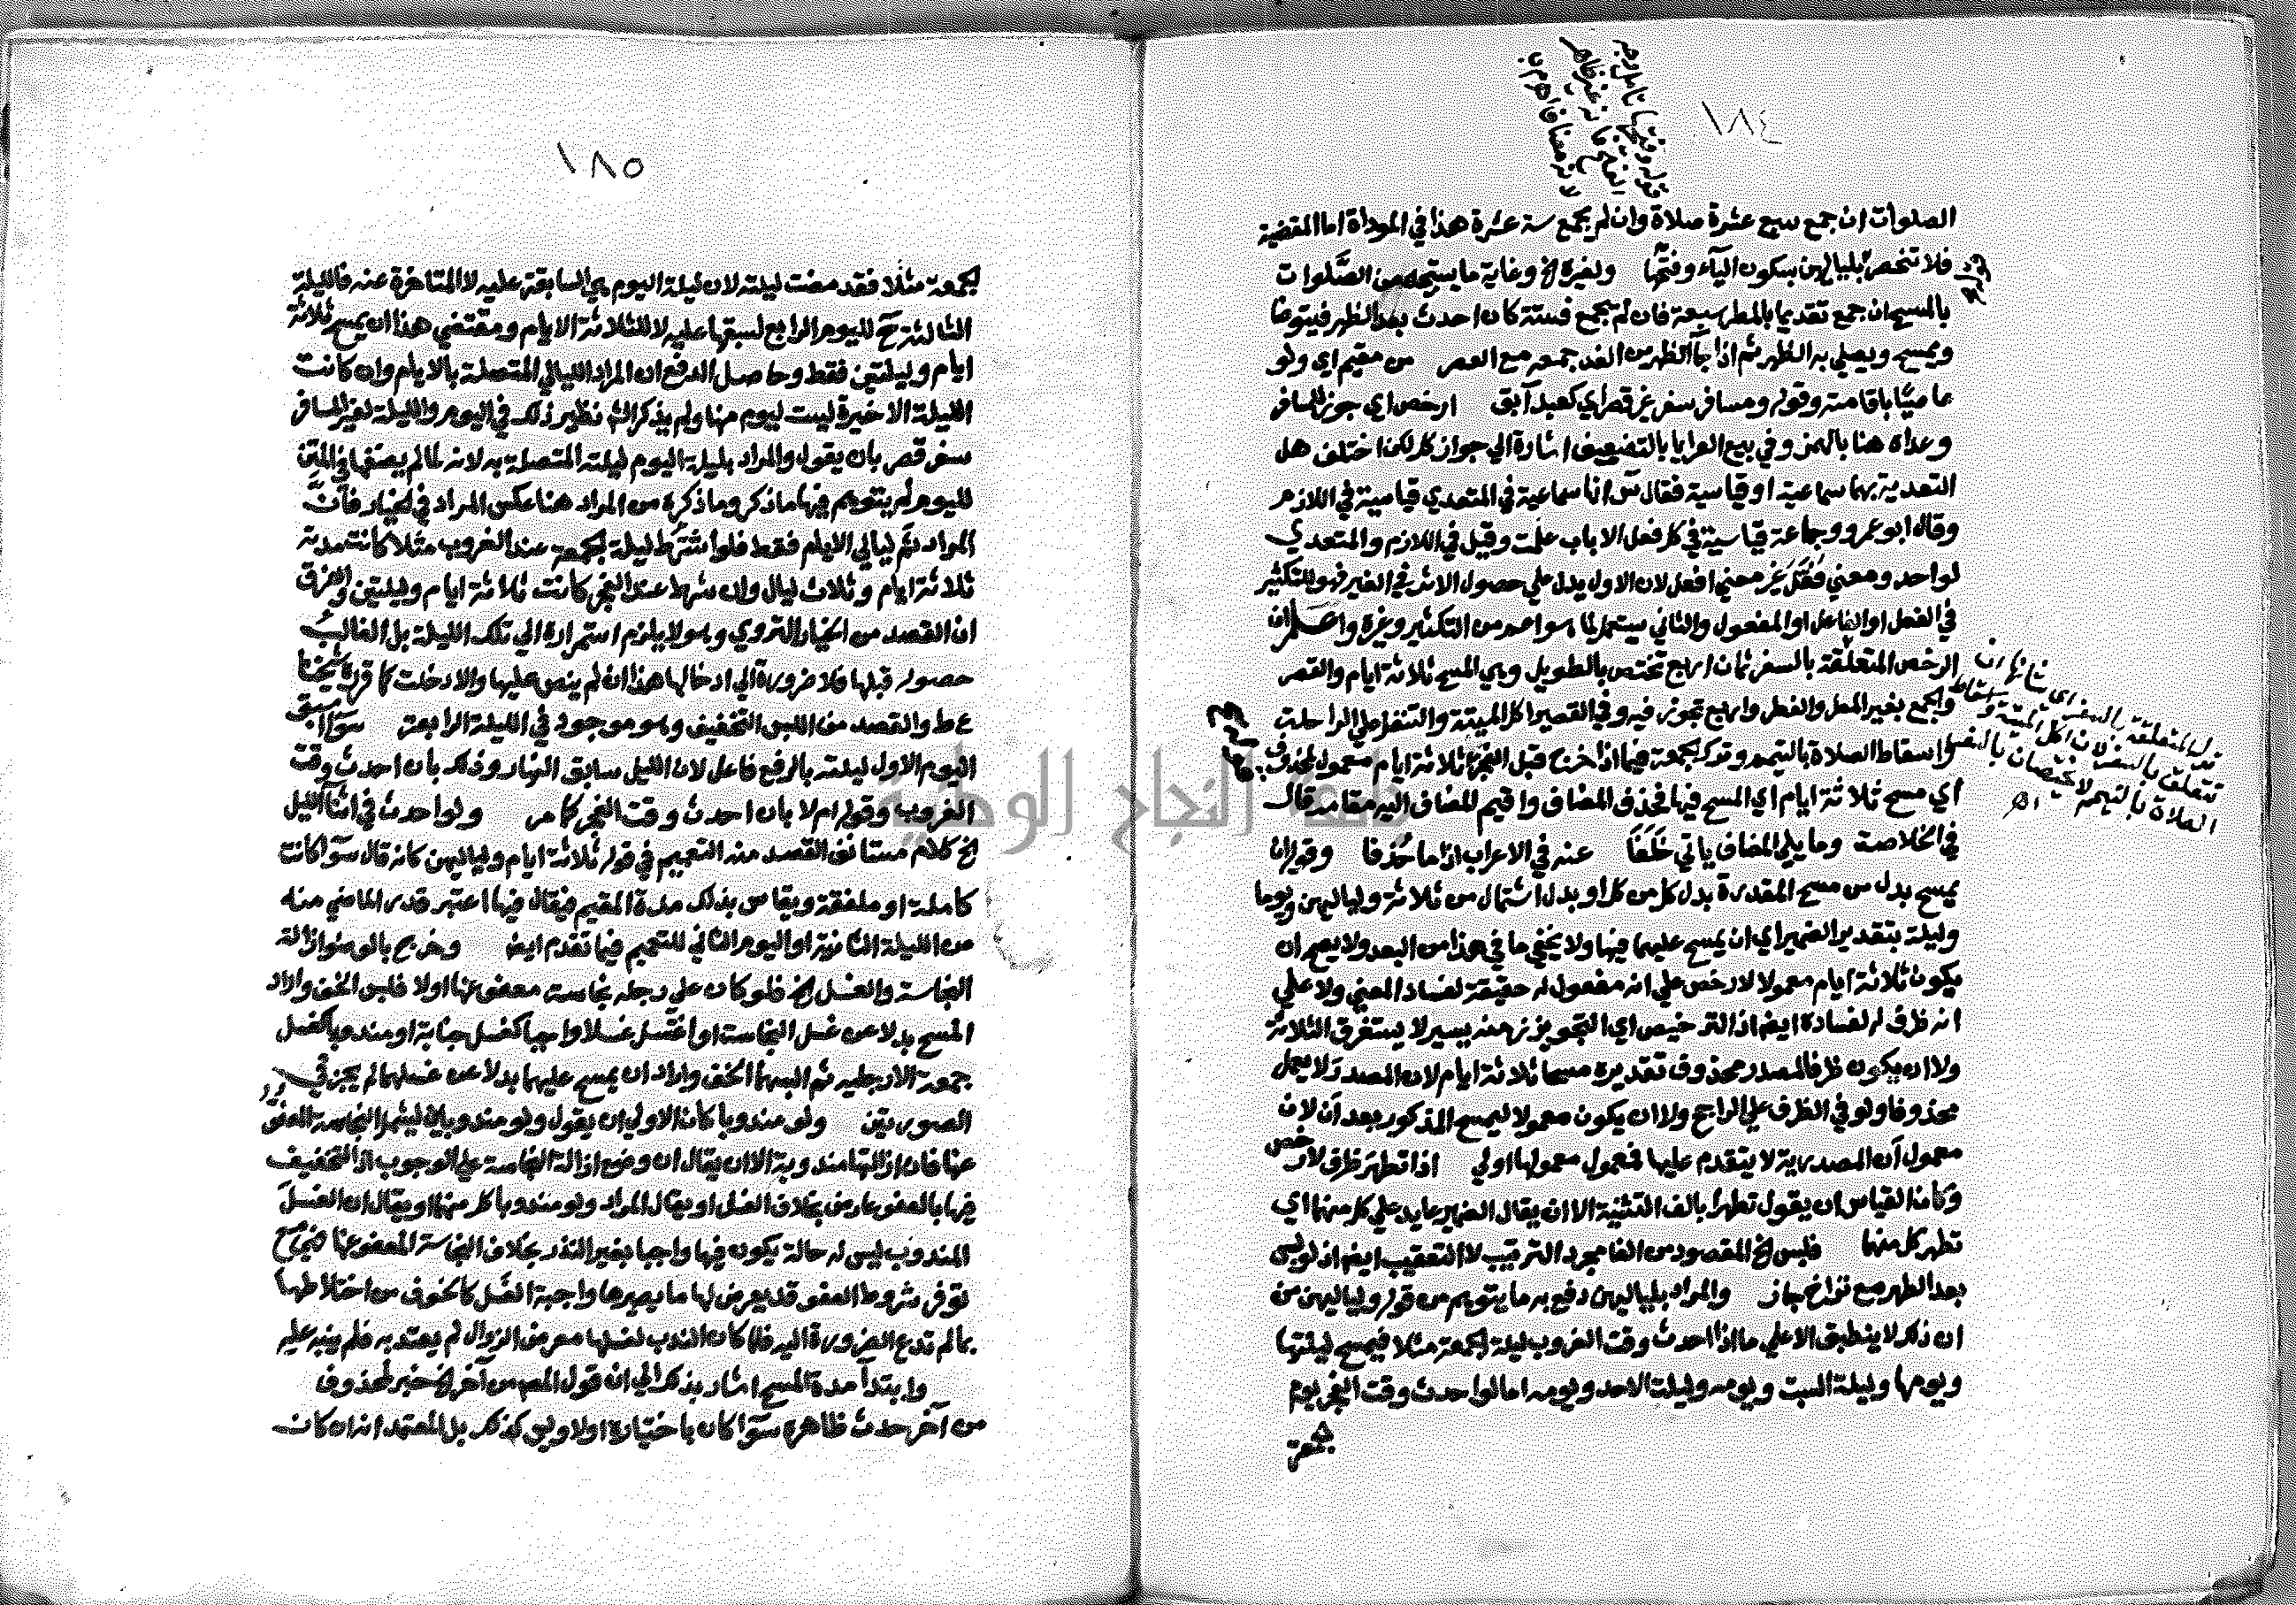 ١٨٤
الصلوات ان جمع سبع عشرة صلاة وان لم يجمع ستة عشرة هذا في الموداة اما المقضية
فلا تنحصر بلياليهن بسكون الياء وفتحها ولغيره الخ وغاية ما يستبيحه من الصلوات
بالمسح ان جمع تقديما بالمطر سبعة فان لم يجمع فستة كان احدث بعد الظهر فيتوضا
ويمسح ويصلي به الظهر ثم اذا جا الظهر من الغد جمعه مع العصر من مقيم اي ولو
عاصيا باقامته وقوله ومسافر سفر غير قصر اي كعبد آبق ارخص اي جوز للمسافر
وعداه هنا بالهمز وفي بيع العرايا بالتضعيف اشارة الي جواز كل لكن اختلف هل
التعدية بهما سماعية او قياسية فقال س انها سماعية في المتعدي قياسية في اللازم
وقال ابو عمرو وجماعة قياسية في كل فعل الا باب علمت وقيل في اللازم والمتعدي
لواحد ومعني فعّل غير معني افعل لان الاول يدل علي حصول الاثر في الغير فهو للتكثير
في الفعل او الفاعل او المفعول والثاني يستعمل لما هو اعم من التكثير وغيره واعلم ان
الرخص المتعلقة بالسفر ثمان اربع تختص بالطويل وهي المسح ثلاثة ايام والقصر
والجمع بغير المطر والفطر واربع تجوز فيه وفي القصير اكل الميتة والتنفل علي الراحلة
واسقاط الصلاة بالتيمم وترك الجمعة فيما اذا خرج قبل الفجر ثلاثة ايام معمول لمحذوف
اي مسح ثلاثة ايام اي المسح فيها فحذف المضاف واقيم المضاف اليه مقامه قال
في الخلاصة وما يلي المضاف ياتي خلفا عنه في الاعراب اذا ما حذفا وقوله ان
يمسح بدل من مسح المقدرة بدل كل من كل او بدل اشتمال من ثلاثة ولياليهن ويوما
وليلة بتقدير الضمير اي ان يمسح عليهما فيها ولا يخفي ما في هذا من البعد ولا يصح ان
يكون ثلاثة ايام معمولا لارخص علي انه مفعول له حقيقة لفساد المعني ولا علي
انه ظرف له لفساده ايضا اذ الترخيص اي التجويز زمنه يسير لا يستغرق الثلاثة
ولا ان يكون ظرفا لمصدر محذوف تقديره مسحا ثلاثة ايام لان المصدر لا يعمل
محذوفا ولو في الظرف علي الراجح ولا ان يكون معمولا ليمسح المذكور بعد ان لان
معمول ان المصدرية لا يتقدم عليها فمعمول معمولها اولي اذا تطهر ظرف لارخص
وكان القياس ان يقول تطهرا بالف التثنية الا ان يقال الضمير عايد علي كل منهما اي
تطهر كل منهما فلبس الخ المقصود من الفا مجرد الترتيب لا التعقيب ايضا اذ لو لبس
بعد الطهر مع تراخ جاز والمراد بلياليهن دفع به ما يتوهم من قوله ولياليهن من
ان ذكر لا ينطبق الا علي ما اذا احدث وقت الغروب ليلة الجمعة مثلا فيمسح ليلتها
ويومها وليلة السبت ويومه وليلة الاحد ويومه اما لو احدث وقت الفجر يوم
الجمعة
١٨٥
الجمعة مثلا فقد مضت ليلته لان ليلة اليوم هي السابقة عليه لا المتاخرة عنه فالليلة
الثالثة ح لليوم الرابع لسبقها عليه لا للثلاثة الايام ومقتضي هذا ان يمسح ثلاثة
ايام وليلتين فقط وحاصل الدفع ان المراد الليالي المتصلة بالايام وان كانت
الليلة الاخيرة ليست ليوم منها ولم يذكر الش نظير ذلك في اليوم والليلة لغير المسافر
سفر قصر بان يقول والمراد بليلة اليوم ليلته المتصلة به لانه لما لم يضفها في المتن
لليوم لم يتوهم فيها ما ذكر وما ذكره من المراد هنا عكس المراد في الخيار فان
المراد ثم ليالي الايام فقط فلو اشترط ليلة الجمعة عند الغروب مثلا كانت مدته
ثلاثة ايام وثلاث ليال وان شرط عند الفجر كانت ثلاثة ايام وليلتين والفرق
ان القصد من الخيار التروي وهو لا يلزم استمراره الي تلك الليلة بل الغالب
حصوله قبلها فلا ضرورة الي ادخالها هذا ان لم ينص عليها والا دخلت كما قرره شيخنا
ع ط والقصد من اللبس التخفيف وهو موجود في الليلة الرابعة سوا اسبق
اليوم الاول ليلته بالرفع فاعل لان الليل سابق النهار وذلك بان احدث وقت
الغروب وقوله ام لا بان احدث وقت الفجر كما مر ولو احدث في اثنا الليل
الخ كلام مستانف القصد منه التعميم في قوله ثلاثة ايام ولياليهن كانه قال سوا كانت
كاملة او ملفقة ويقاس بذلك مدة المقيم فيقال فيها اعتبر قدر الماضي منه
من الليلة الثانية او اليوم الثاني للتعميم فيما تقدم ايضا وخرج بالوضو ازالة
النجاسة والغسل الخ فلو كان علي رجله نجاسة معفو عنها اولا فلبس الخف واراد
المسح بدلا عن غسل النجاسة او اغتسل غسلا واجبا كغسل جنابة او مندوبا كغسل
جمعة الا رجليه ثم البسهما الخف واراد ان يمسح عليهما بدلا عن غسلهما لم يجز في
الصورتين ولو مندوبا كان الاولي ان يقول ولو مندوبان ليشمل النجاسة المعفو
عنها فان ازالتها مندوبة الا ان يقال ان وضع ازالة النجاسة علي الوجوب اذ التخفيف
فيها بالعفو عارض بخلاف الغسل او يقال المراد ولو مندوبا كل منهما او يقال ان الغسل
المندوب ليس له حالة يكون فيها واجبا بغير النذر بخلاف النجاسة المعفو عنها فيجمع
توفر شروط العفو قد يعرض لها ما يصيرها واجبة الغسل كالخوف من اختلاطها
بما لم تدع الضرورة اليه فلما كان الندب لغسلها معرض الزوال لم يعتد به فلم ينبه عليه
وابتدا مدة المسح اشار بذكر الي ان قول المص من آخر الخ خبر لمحذوف
من آخر حدث ظاهره سوا كان باختياره اولا وليس كذلك بل المعتمد انه ان كان